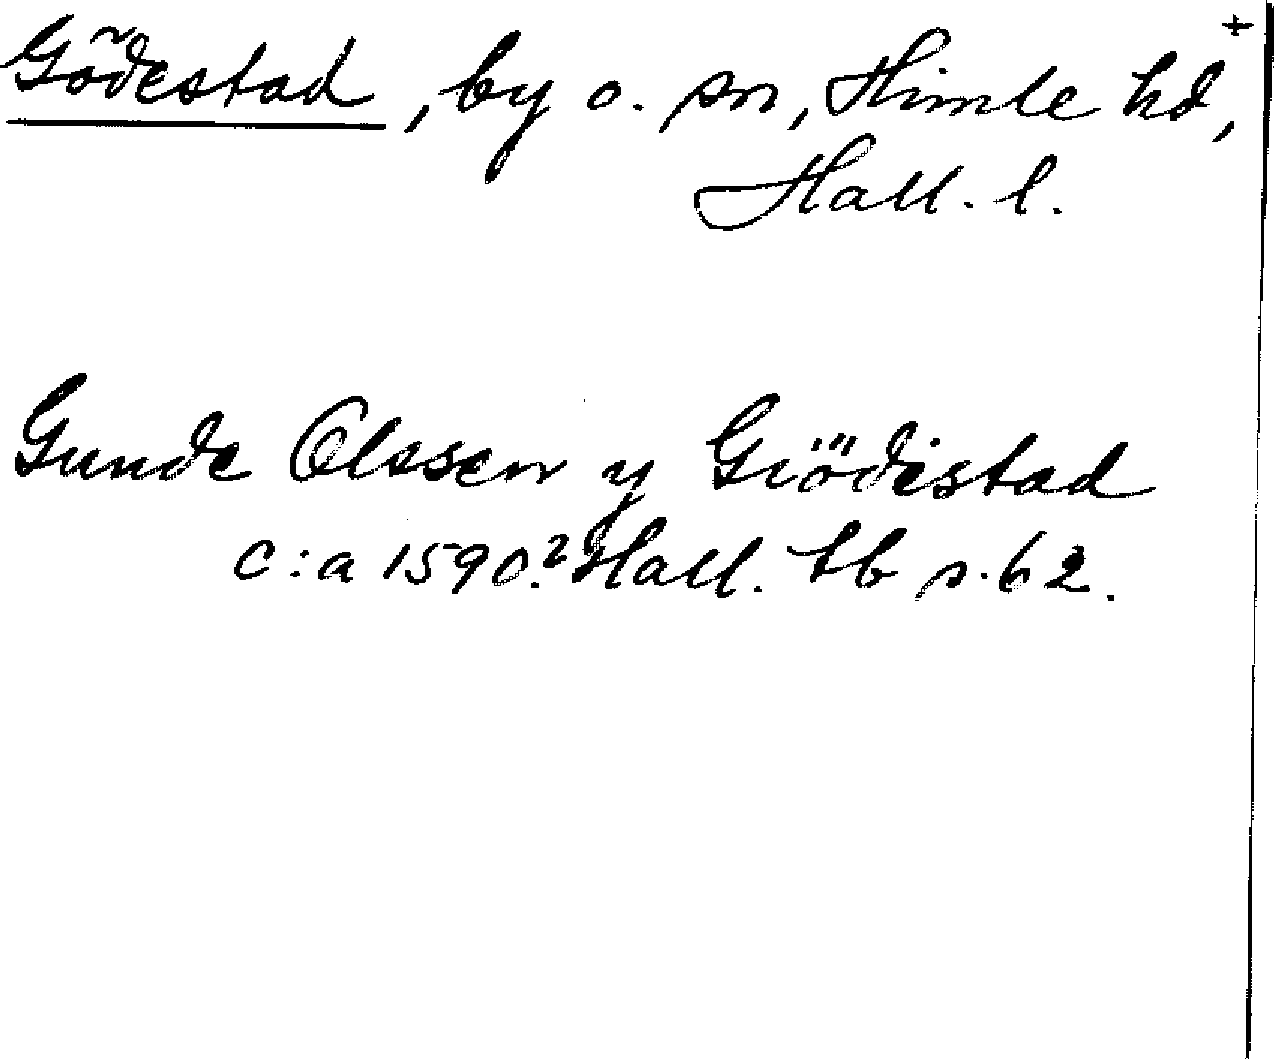 Gödestad, by o. sn, Himle hd, +
Hall. l.
Gunde Olssen y Giödestad
c:a 1590.? Hall. tb s. 62.